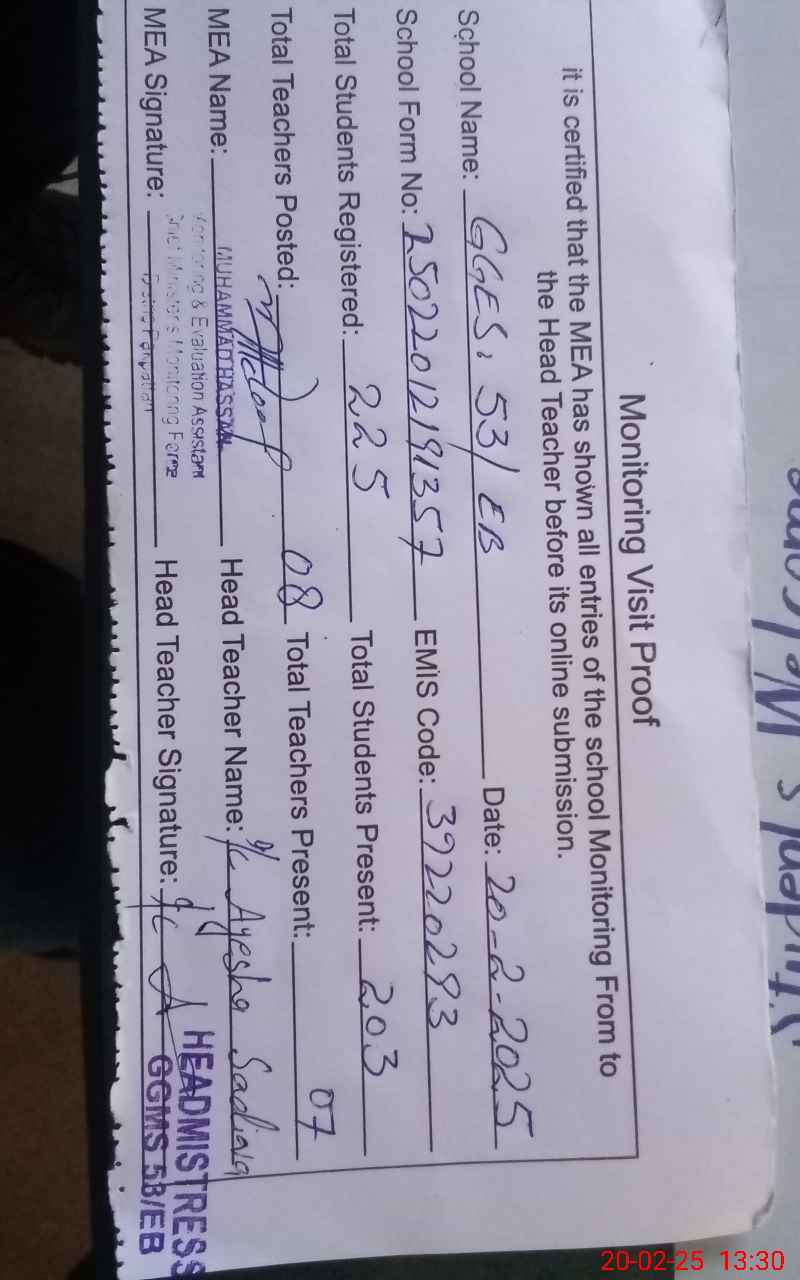 Student's Wel come
Monitoring Visit Proof
it is certified that the MEA has shown all entries of the school Monitoring From to
the Head Teacher before its online submission.
School Name: GGES, 53/EB Date: 20-2-2025
School Form No: 25022012191357 EMIS Code: 39220293
Total Students Registered: 225 Total Students Present: 203
Total Teachers Posted: 08 Total Teachers Present: 07
MEA Name: MUHAMMAD HASSAN Head Teacher Name: I/C Ayesha Sadiqa
Monitoring & Evaluation Assistant
Chief Minister's Monitoring Force
MEA Signature: Head Teacher Signature: I/C
HEADMISTRESS
GGMS 53/EB
20-02-25 13:30